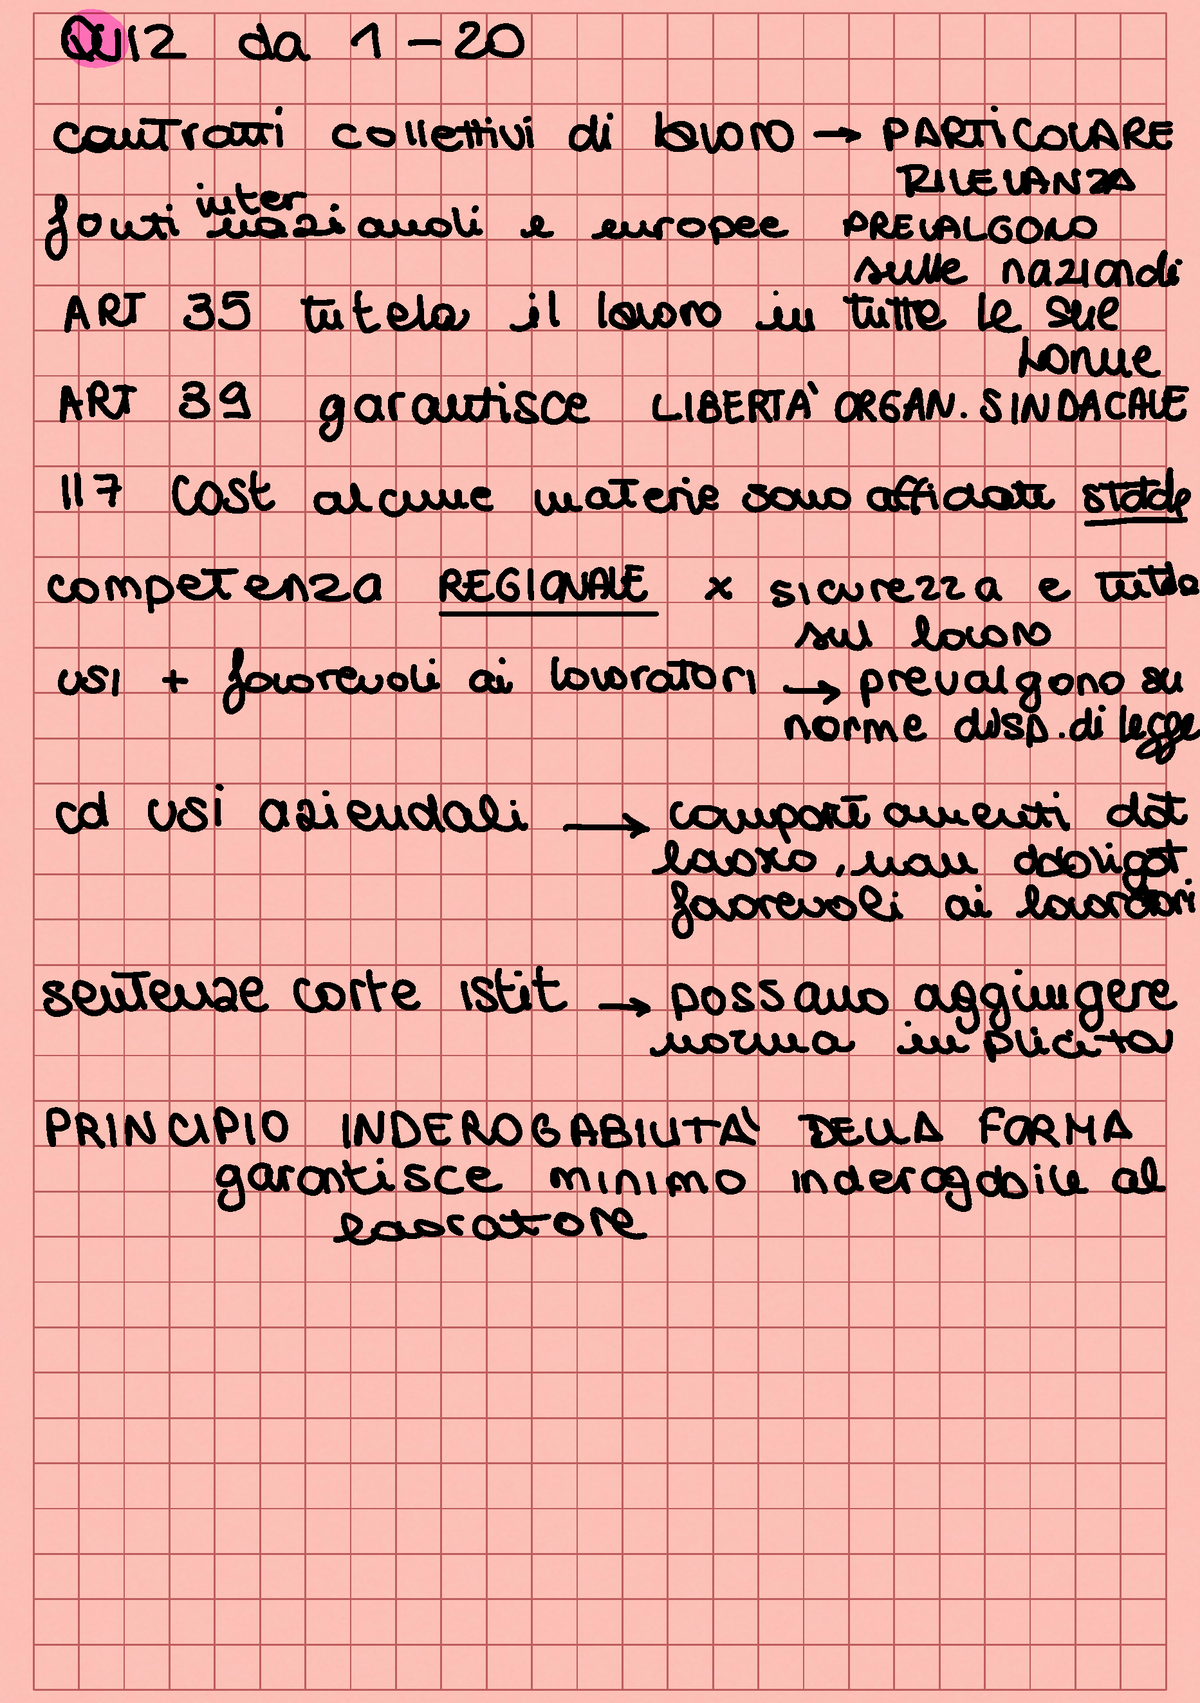 QUIZ da 1-20
contratti collettivi di lavoro → PARTICOLARE
RILEVANZA
fonti internazionali e europee PREVALGONO
sulle nazionali
ART 35 tutela il lavoro in tutte le sue
forme
ART 39 garantisce LIBERTA' ORGAN. SINDACALE
117 COST alcune materie sono affidate statale
competenza REGIONALE x sicurezza e tutela
sul lavoro
usi + favorevoli ai lavoratori → prevalgono su
norme disp. di legge
cd usi aziendali → comportamenti dat
lavoro, non obbligat
favorevoli ai lavoratori
sentenze corte istit → possano aggiungere
norma implicita
PRINCIPIO INDEROGABILITA' DELLA FORMA
garantisce minimo inderogabile al
lavoratore